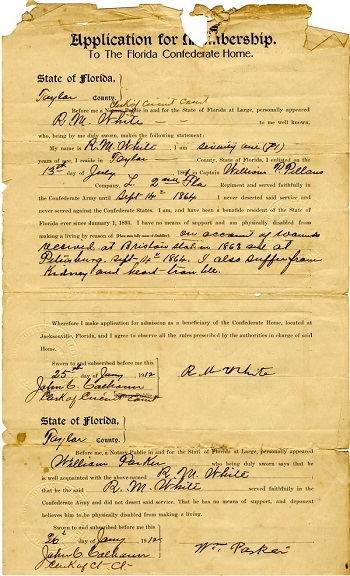 Application for Membership.
To The Florida Confederate Home.
State of Florida,
Taylor County.
Clerk of Circuit Court
Before me a Notary Public in and for the State of Florida at Large, personally appeared
R. M. White to me well known,
who, being by me duly sworn, makes the following statement:
My name is R. M. White I am seventy one (71)
years of age, I reside in Taylor County, State of Florida, I enlisted on the
13th day of July 186 in Captain William P. Pillans
Company L 2nd Fla Regiment and served faithfully in
the Confederate Army until Sept 14th 1864 I never deserted said service and
never served against the Confederate States. I am, and have been a bonafide resident of the State of
Florida ever since January 1, 1893. I have no means of support and am physically disabled from
making a living by reason of on account of wounds
received at Bristow station in 1863 and at
Petersburg Sept 14th 1864. I also suffer from
Kidney and heart trouble.
Wherefore I make application for admission as a beneficiary of the Confederate Home, located at
Jacksonville, Florida, and I agree to observe all the rules prescribed by the authorities in charge of said
Home.
Sworn to and subscribed before me this
25th day of Jany 1912
John C. Calhoun
Clerk of Circuit Court
R. M. White
State of Florida,
Taylor County.
Before me, a Notary Public in and for the State of Florida at Large, personally appeared
William Parker who being duly sworn says that he
is well acquainted with the above-named R. M. White
that he the said R. M. White served faithfully in the
Confederate Army and did not desert said service. That he has no means of support, and deponent
believes him to be physically disabled from making a living.
Sworn to and subscribed before me this
26th day of Jany 1912
John C. Calhoun
Clerk of Ct. Ct.
Wm Parker